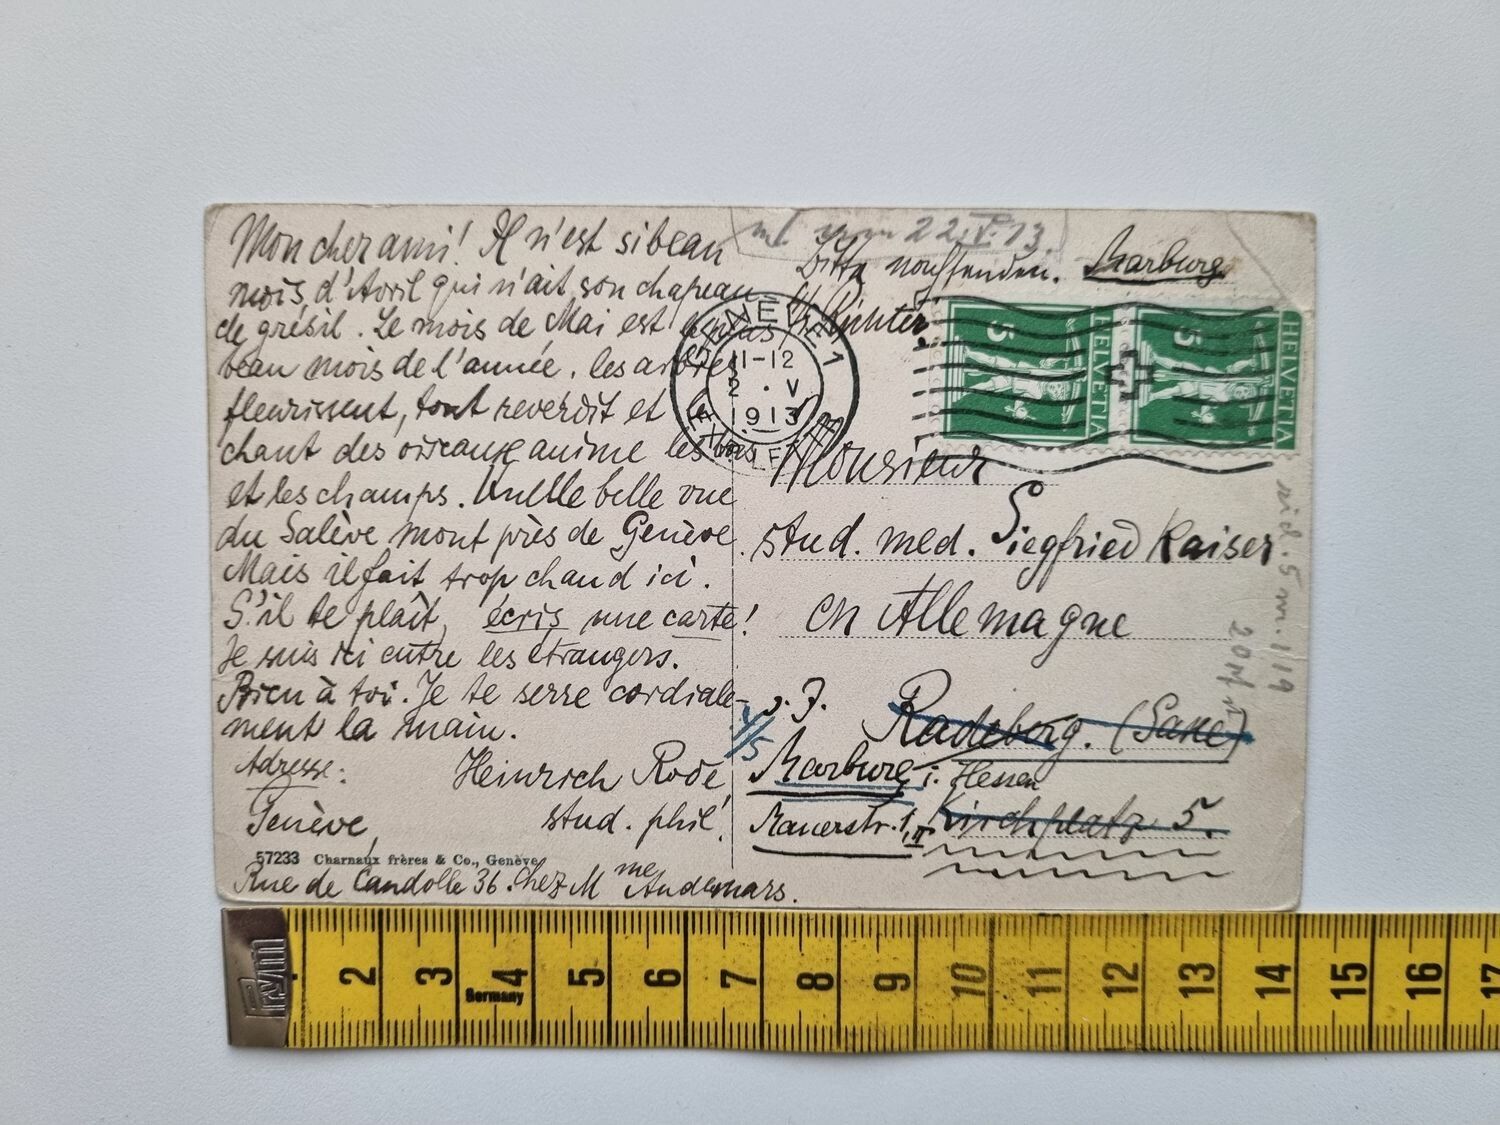 Mon cher ami! Il n'est si beau
mois, d'Avril qui n'ait son chapeau
de grésil. Le mois de Mai est le plus
beau mois de l'année, les arbres
fleurissent, tout reverdit et le
chant des oiseaux anime les bois
et les champs. Unelle belle vue
du Salève mont près de Genève.
Mais il fait trop chaud ici.
S'il te plaît, écris une carte!
Je suis ici entre les étrangers.
Bien à toi. Je te serre cordiale-
ment la main.
Adresse: Heinrich Rode
Genève, stud. phil.
57233 Charnaux frères & Co., Genève
Rue de Candolle 36. chez Mme Audemars.
22.V.13.
Bitte nachsenden. Marburg
Richter
GENÈVE 1
11-12
2 . V
1913
5 HELVETIA
5 HELVETIA
Monsieur
stud. med. Siegfried Kaiser
en Allemagne
z. Z. Radeberg. (Saxe)
Marburg i. Hessen
Mauerstr. 1, II Kirchplatz 5.
Prym
Germany
2 3 4 5 6 7 8 9 10 11 12 13 14 15 16 17